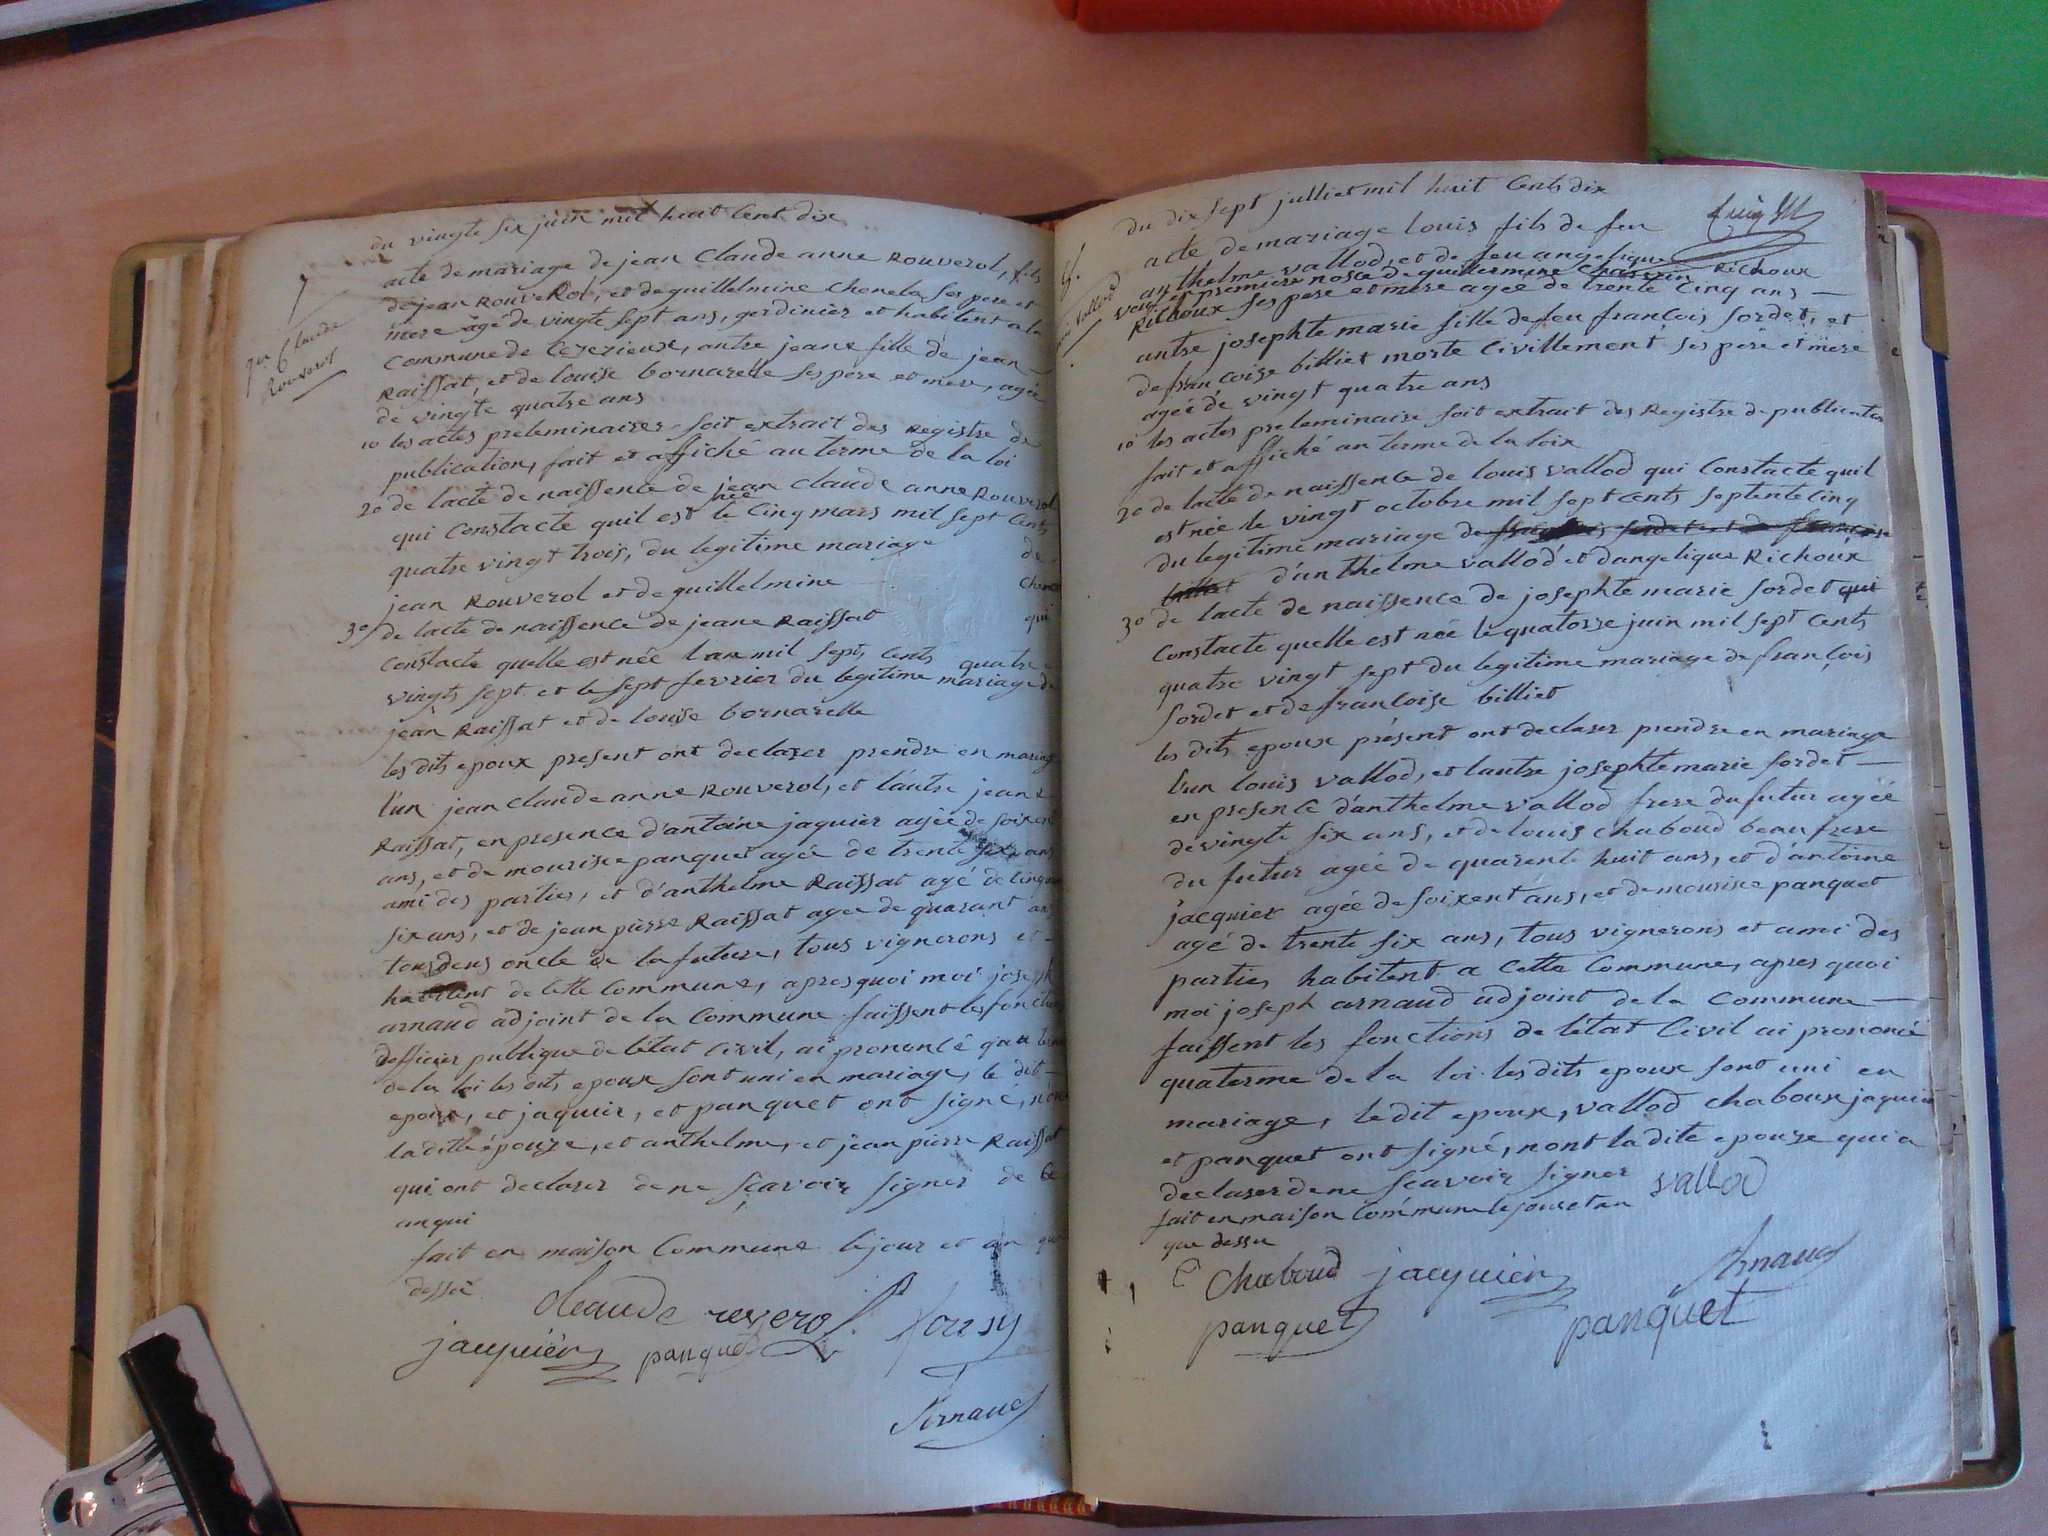 du vingte six juin mil huit Cent dix
acte de mariage de jean Claude anne Rouverol, fils
de jean Rouverol, et de guillelmine Chenela ses pere et
mere âgé de vingte sept ans, gerdinier et habitent a la
Commune de Cezerieux, autre jeane fille de jean
Raissat, et de louise bornarelle ses pere et mere, agée
de vingte quatre ans
7
Claude
Rouverol
1o les actes preleminaires soit extrait des Registre de
publication, fait et affiché au terme de la loi
2o de lacte de naissence de jean Claude anne Rouverol
née
qui Constacte quil est le Cinq mars mil sept Cents
quatre vingt trois, du legitime mariage de
jean Rouverol et de guillelmine
3o de lacte de naissence de jeane Raissat qui
Constacte quelle est née lan mil sept Cents quatre
vingts sept et le sept fevrier du legitime mariage de
jean Raissat et de louise bornarelle
les dits epoux present ont declarer prendre en mariage
l'un jean Claude anne Rouverol, et l'autre jeane
Raissat, en presence d'antoine jaquier agée de soixent
ans, et de mourise panquet agée de trente six ans
ami des parties, et d'anthelme Raissat agé de Cinquante
six ans, et de jean pierre Raissat agee de quarant ans
tous deus oncle de la future, tous vignerons et
habitent de cette Commune, apres quoi moi joseph
arnaud adjoint de la Commune faissent les fonctions
d'officier publique de l'état Civil, ai prononcé qau terme
de la loi les dits epoux sont uni en mariage, le dit
epoux, et jaquier, et panquet ont signé, n'ont
la ditte épouze, et anthelme, et jean pierre Raissat
qui ont declarer de ne sçavoir signer de ce
an qui
fait en maison Commune le jour et an que
dessu
Claude reverol
jacquier panquet
Arnaud
du dix sept julliet mil huit Cents dix
acte de mariage louis fils de feu
anthelme vallod, et de feu angelique Richoux
veuf en premiere nosse de guillermine
Richoux ses pere et mere agee de trente Cinq ans
autre josephte marie fille de feu françois sordet, et
de francoise billiet morte Civillement ses pere et mere
agée de vingt quatre ans
vallod
1o les actes preleminaire soit extrait des Registre de publication
fait et affiché au terme de la loix
2o de lacte de naissence de louis vallod qui Constacte quil
est née le vingt octobre mil sept Cents septente Cinq
du legitime mariage de
d'anthelme vallod et d'angelique Richoux
3o de lacte de naissence de josephte marie sordet qui
Constacte quelle est née le quatorze juin mil sept Cents
quatre vingt sept du legitime mariage de françois
sordet et de françoise billiet
les dits epoux présent ont declarer prendre en mariage
l'un louis vallod, et lautre josephte marie sordet
en presence d'anthelme vallod frere du futur agée
de vingte six ans, et de louis chaboud beau frere
du futur agée de quarente huit ans, et d'antoine
jacquier agée de soixent ans, et de mourise panquet
agé de trente six ans, tous vignerons et ami des
parties habitent a cette Commune, apres quoi
moi joseph arnaud adjoint de la Commune
faissent les fonctions de l'état Civil ai prononcé
quaterme de la loi les dits epoux sont uni en
mariage, le dit epoux, vallod chaboux jaquier
et panquet ont signé, nont la dite epouze qui a
declarer de ne scavoir signer
fait en maison Commune le jour et an
que dessu
vallod
C chaboud jacquier Arnaud
panquet panquet